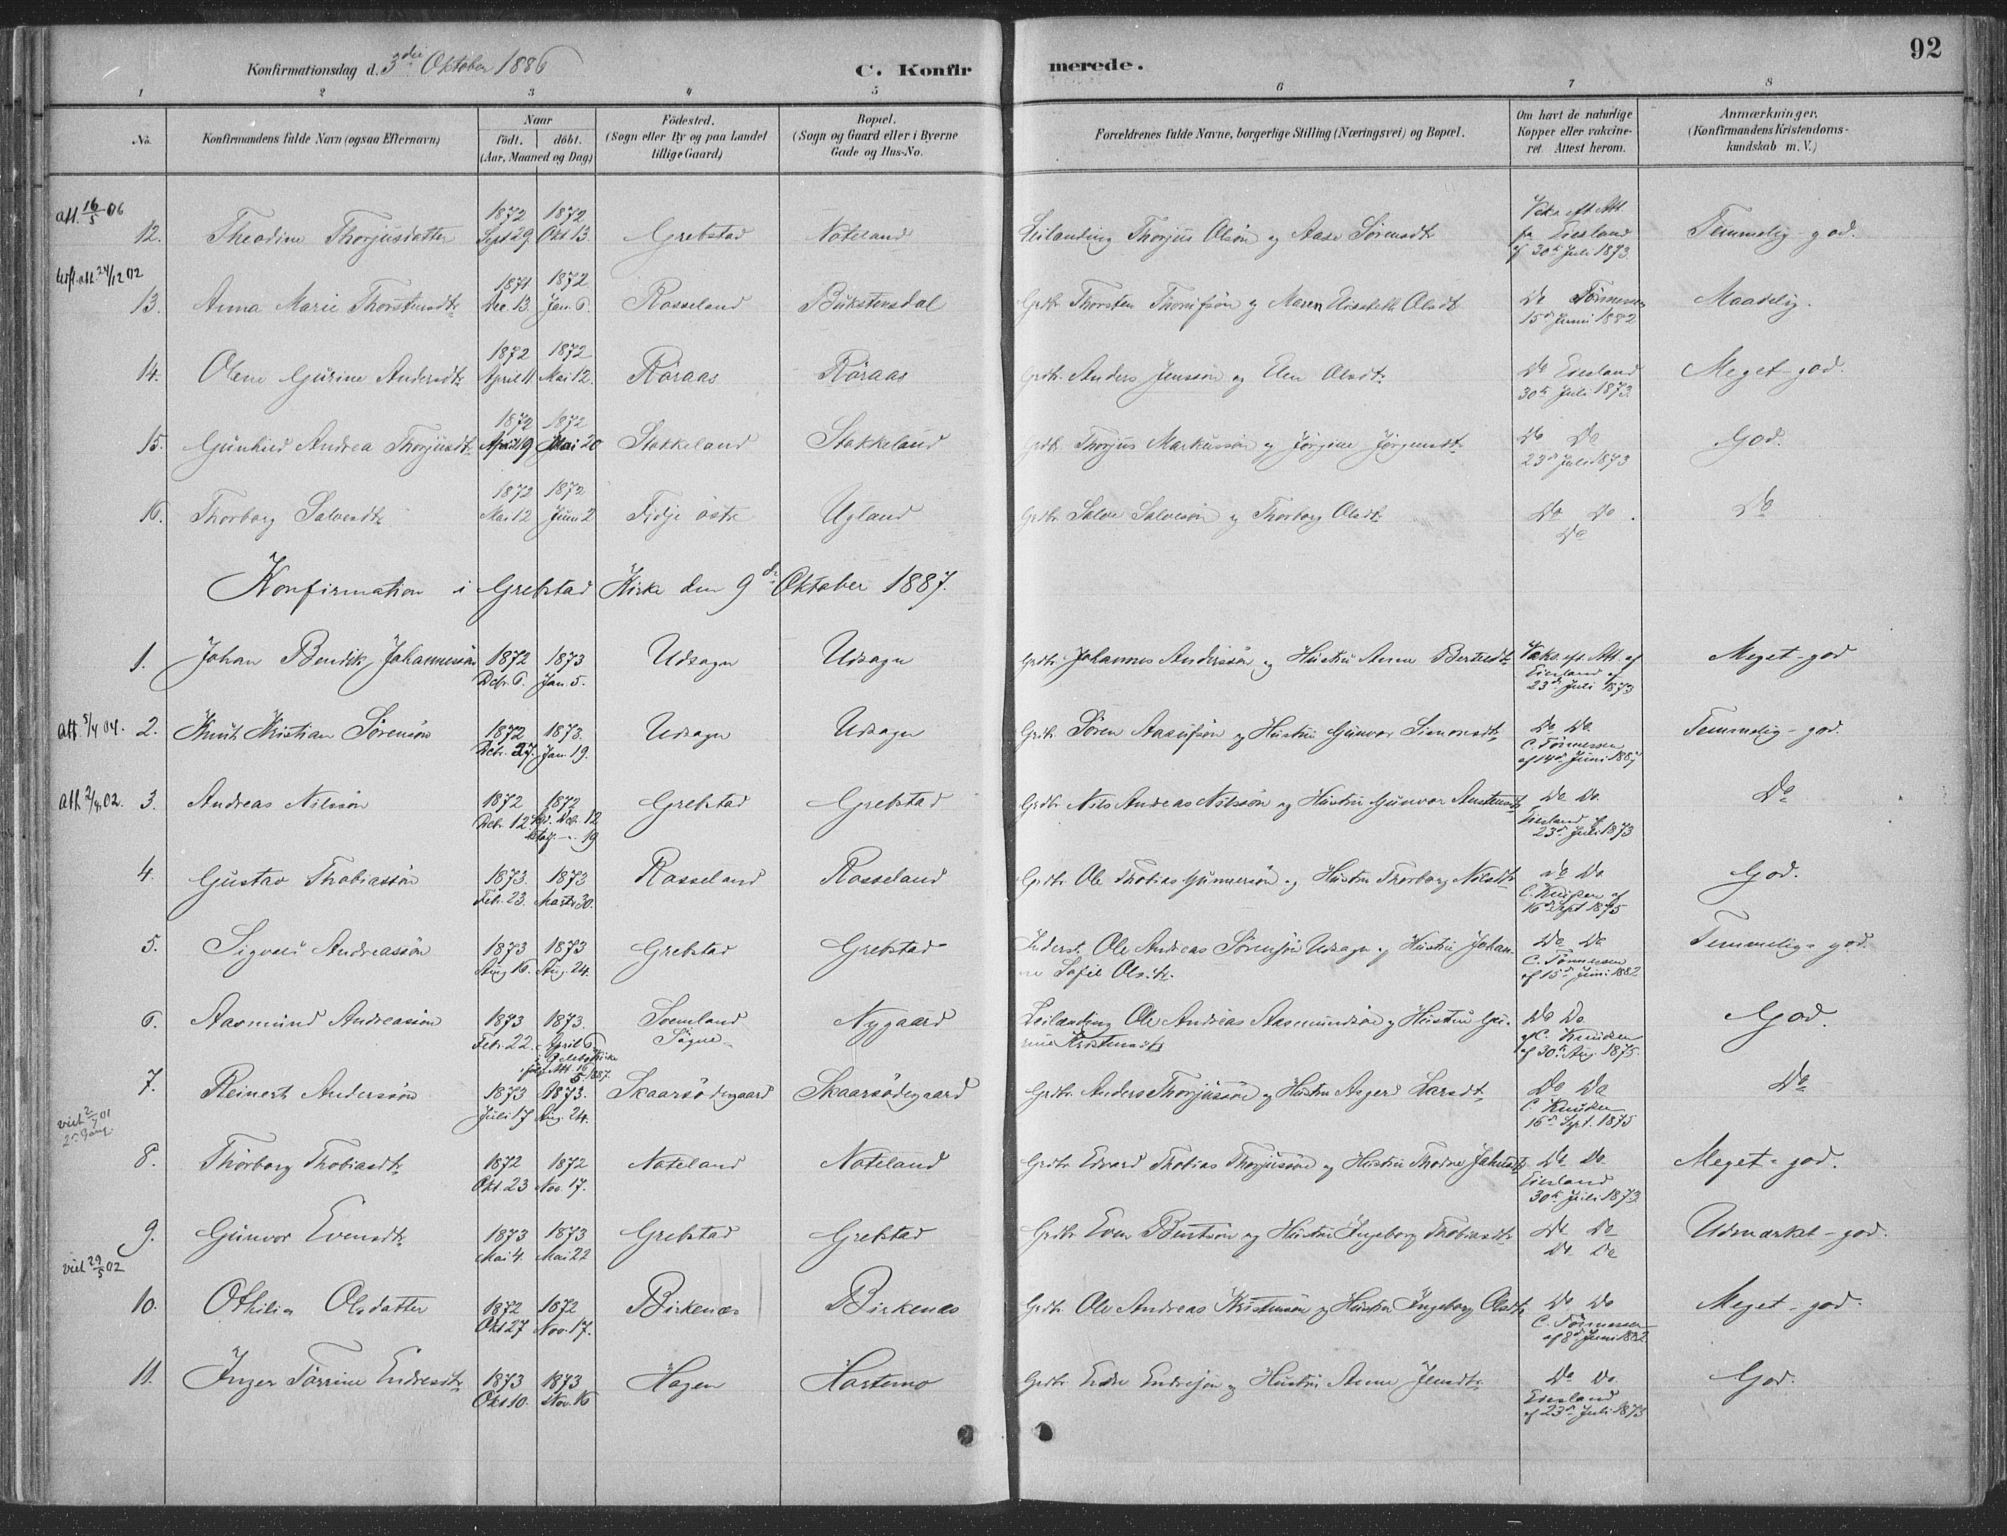 92
Konfirmationsdag d. 3die Oktober 1886
C. Konfirmerede.
1 2 3 4 5 6 7 8
No. Konfirmandens fulde Navn (ogsaa Efternavn) Naar født. døbt. (Aar, Maaned og Dag) Fødested. (Sogn eller By og paa Landet tillige Gaard) Bopæl. (Sogn og Gaard eller i Byerne Gade og Hus-No. Forældrenes fulde Navne, borgerlige Stilling (Næringsvei) og Bopæl. Om havt de naturlige Kopper eller vaccineret Attest herom. Anmærkninger. (Konfirmandens Kristendomskundskab m. V.)
att. 16/5 06
12. Theodine Thorjusdatter 1872 Sept 29. 1872 Okt 13. Grebstad Noteland Leilænding Thorjus Olsön og Aase Sörensdtr Vaks. eft. Att. fra Eiesland af 30te Juli 1873. Temmelig-god.
att. 24/12 02
13. Anna Marie Thorstensdtr 1871 Dec. 13. 1872 Jan. 6. Rosseland Bukstensdal Grdbr. Thorsten Thomesön og Maren Elisabeth Olsdtr Do Tönnesen 15de Juni 1882 Maadelig.
14. Olene Gurine Andersdtr 1872 April 11 1872 Mai 12. Röraas Röraas Grdbr. Anders Jensson og Elen Olsdtr. Do Eiesland 30te Juli 1873. Meget-god.
15. Gunhild Andrea Thorjusdtr 1872 April 19 1872 Mai 20 Stokkeland Stakkeland Grdbr. Thorjus Markusson og Jörgine Jörgensdtr. Do Do 23de Juli 1873 God.
16. Thorborg Salvesdtr 1872 Mai 12 1872 Juni 2 Fidje östre Ugland Grdbr. Salve Salvesön og Thorborg Olsdtr Do Do. Do Do
Konfirmation i Grebstad Kirke den 9de Oktober 1887.
1. Johan Bendik Johannessön 1872 Dcbr. 6. 1873 Jan. 5. Udsogn Udsogn Grdbr. Johannes Anderssön og Hustru Anne Berntsdtr Vaks. eft. Att. af Eiesland af 23de Juli 1873 Meget-god
att 5/4 04. 2. Knut Kristian Sörensön 1872 Dcbr. 27. 1873. Jan. 19. Udsogn Udsogn Grdbr. Sören Aanesön og Hustru Gunvor Simonsdtr Do Do. C. Tönnessen af 14de Juni 1887 Temmelig-god.
att 2/4 02. 3. Andreas Nilssön 1872 Dcbr. 12. 1872 Dcbr. 12 19 Grebstad Grebstad Grdbr Nils Andreas Nilssön og Hustru Gunvor Austensdtr Do Do. Eiesland af 23de Juli 1873 Do
4. Gustav Thobiassön 1873. Febr. 23. 1873 Marts 30. Rosseland Rosseland Grdbr. Ole Thobias Gunnersön og Hustru Thorborg Nilsdtr Do Do C. Knudsen af 16de Sept 1875 God.
5. Sigvald Andreassön 1873 Aug 16. 1873 Aug. 24. Grebstad Grebstad Inderst. Ole Andreas Sörensön Udsogn og Hustru Johanne Sofie Olsdtr. Do Do C. Tönnessen af 15de Juni 1882 Temmelig-god.
6. Aasmund Andreassön 1873 Febr. 22. 1873. April 6 Att. 16/5 1887. Loenland Sögne Nygaard Leilænding Ole Andreas Aasmundsön og Hustru Gurine Kristensdtr Do Do af C. Knudsen af 30te Aug. 1875. God.
7. Reinert Anderssön 1873 Juli 17 1873. Aug. 24. Skaarsödegaard Skaarsödegaard Grdbr. Anders Thorjussön og Hustru Asger Larsdtr. Do Do C Knudsen 16de Sept. 1875 Do
viet 2/7 01 2den Gang.
8. Thorborg Thobiasdtr 1872 Okt. 23 1872 Nov. 17. Noteland Noteland Grdbr Edvard Thobias Thorjussön og Hustru Thodne Johnsdtr Do Do. Eiesland 30te Juli 1873. Meget-god.
9. Gunvor Evensdtr 1873 Mai 4. 1873 Mai 22 Grebstad Grebstad Grdbr Even Berntsön og Hustru Ingeborg Thobiasdtr Do Do Do Do Udmærket-god.
viet 29/5 02
10. Othilia Olsdatter 1872 Okt 27 1872 Nov. 17. Birkenæs Birkenæs Grdbr. Ole Andreas Kristensön og Hustru Ingeborg Olsdtr Do Do C. Tönnessen af 8de Juni 1882. Meget-god.
11. Inger Torrine Endresdtr 1873 Okt 10. 1873 Nov. 16 Hagen Hortemo Grdbr. Endre Endresön og Hustru Anne Jensdtr. Do Do. Eiesland af 23de Juli 1873 God.